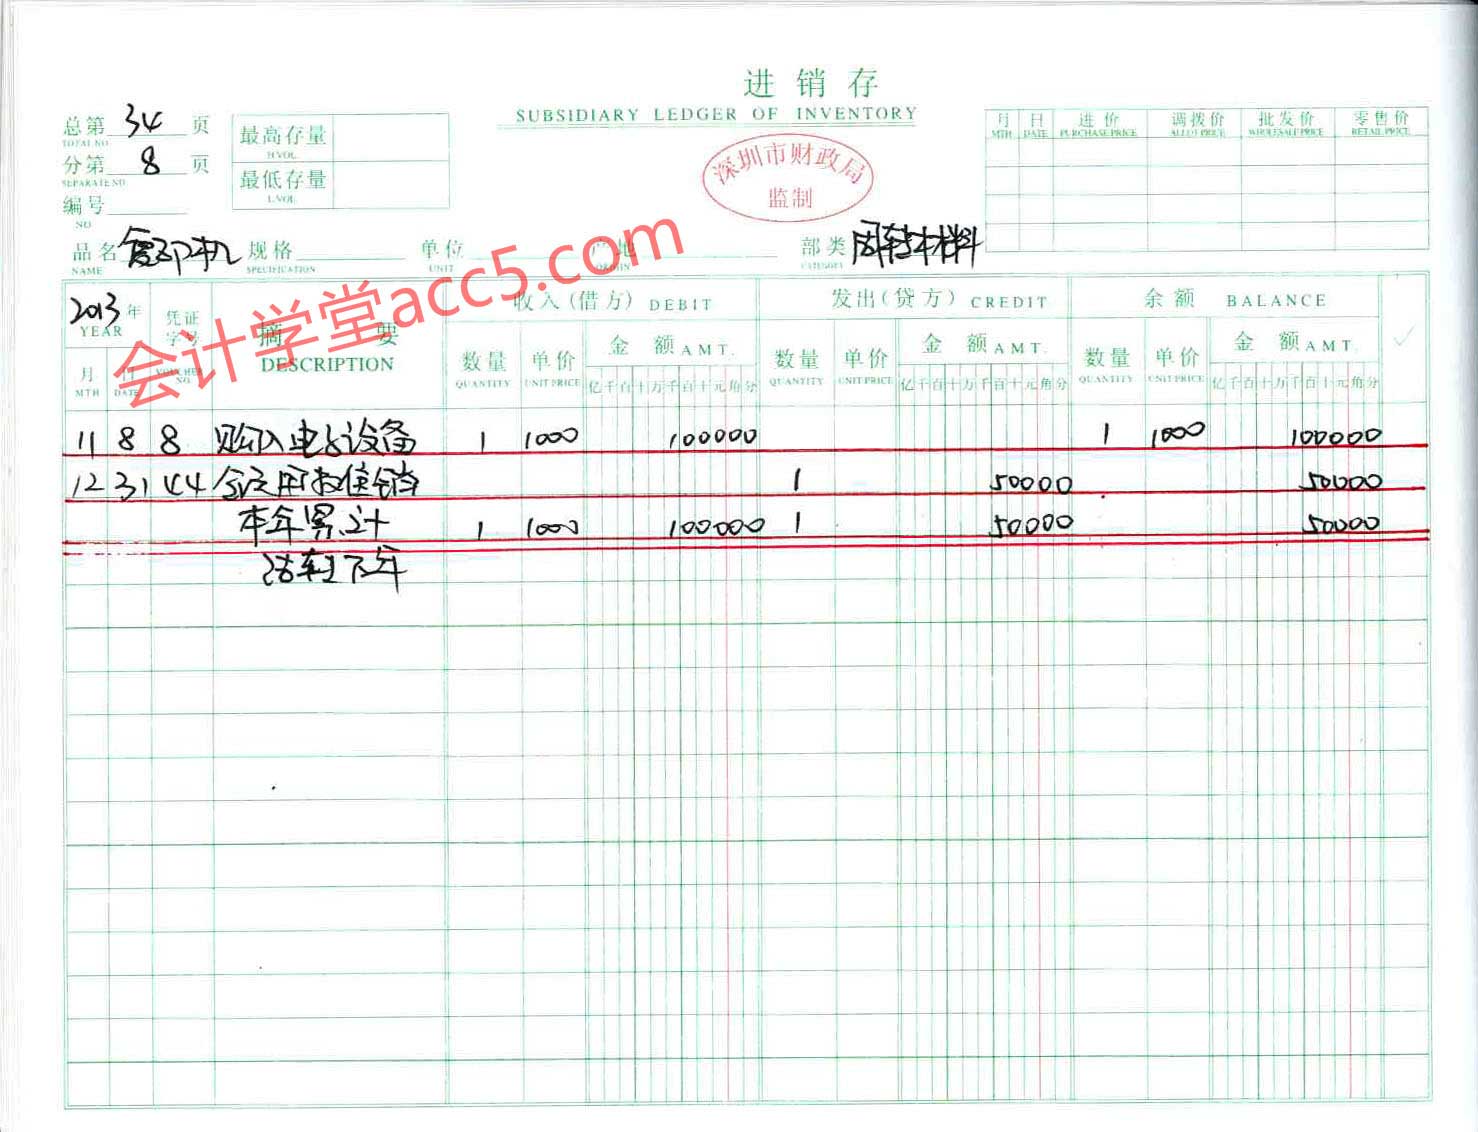 进销存
SUBSIDIARY LEDGER OF INVENTORY
总第 34 页
TOTAL NO
分第 8 页
SEPARATE NO
编号
NO
最高存量
H.VOL.
最低存量
L.VOL.
深圳市财政局
监制
月 日 进价 调拨价 批发价 零售价
MTH DATE PURCHASE PRICE ALLOT PRICE WHOLESALE PRICE RETAIL PRICE
品名 复印机 规格 单位 产地 部类 周转材料
NAME SPECIFICATION UNIT ORIGIN CATEGORY
会计学堂acc5.com
2013 年 凭证字号 摘要 收入(借方) DEBIT 发出(贷方) CREDIT 余额 BALANCE
YEAR VOUCHER NO. DESCRIPTION
数量 单价 金额 AMT. 数量 单价 金额 AMT. 数量 单价 金额 AMT.
月 日 QUANTITY UNIT PRICE 亿千百十万千百十元角分 QUANTITY UNIT PRICE 亿千百十万千百十元角分 QUANTITY UNIT PRICE 亿千百十万千百十元角分
MTH DATE
11 8 8 购入电子设备 1 1000 100000 1 1000 100000
12 31 44 1 50000 50000
本年累计 1 1000 100000 1 50000 50000
结转下年